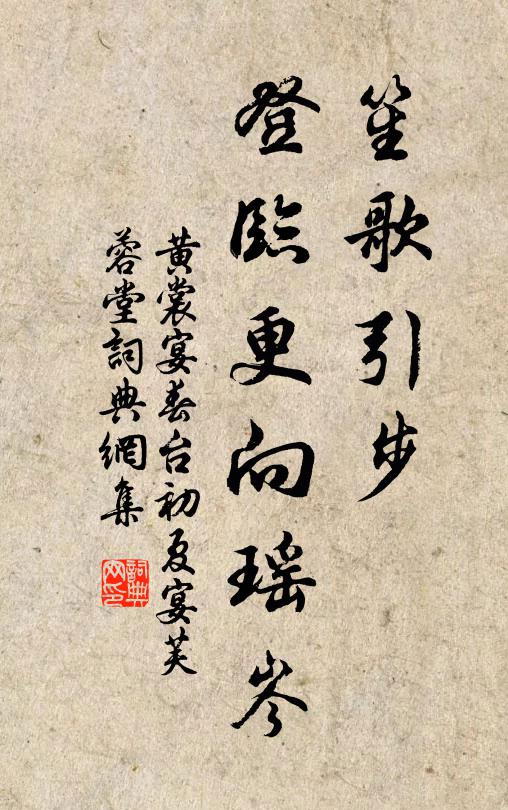 笙歌引步
登臨更向瑶岑
黄裳宴春台初夏宴芙
蓉堂詞典網集
詞典网印